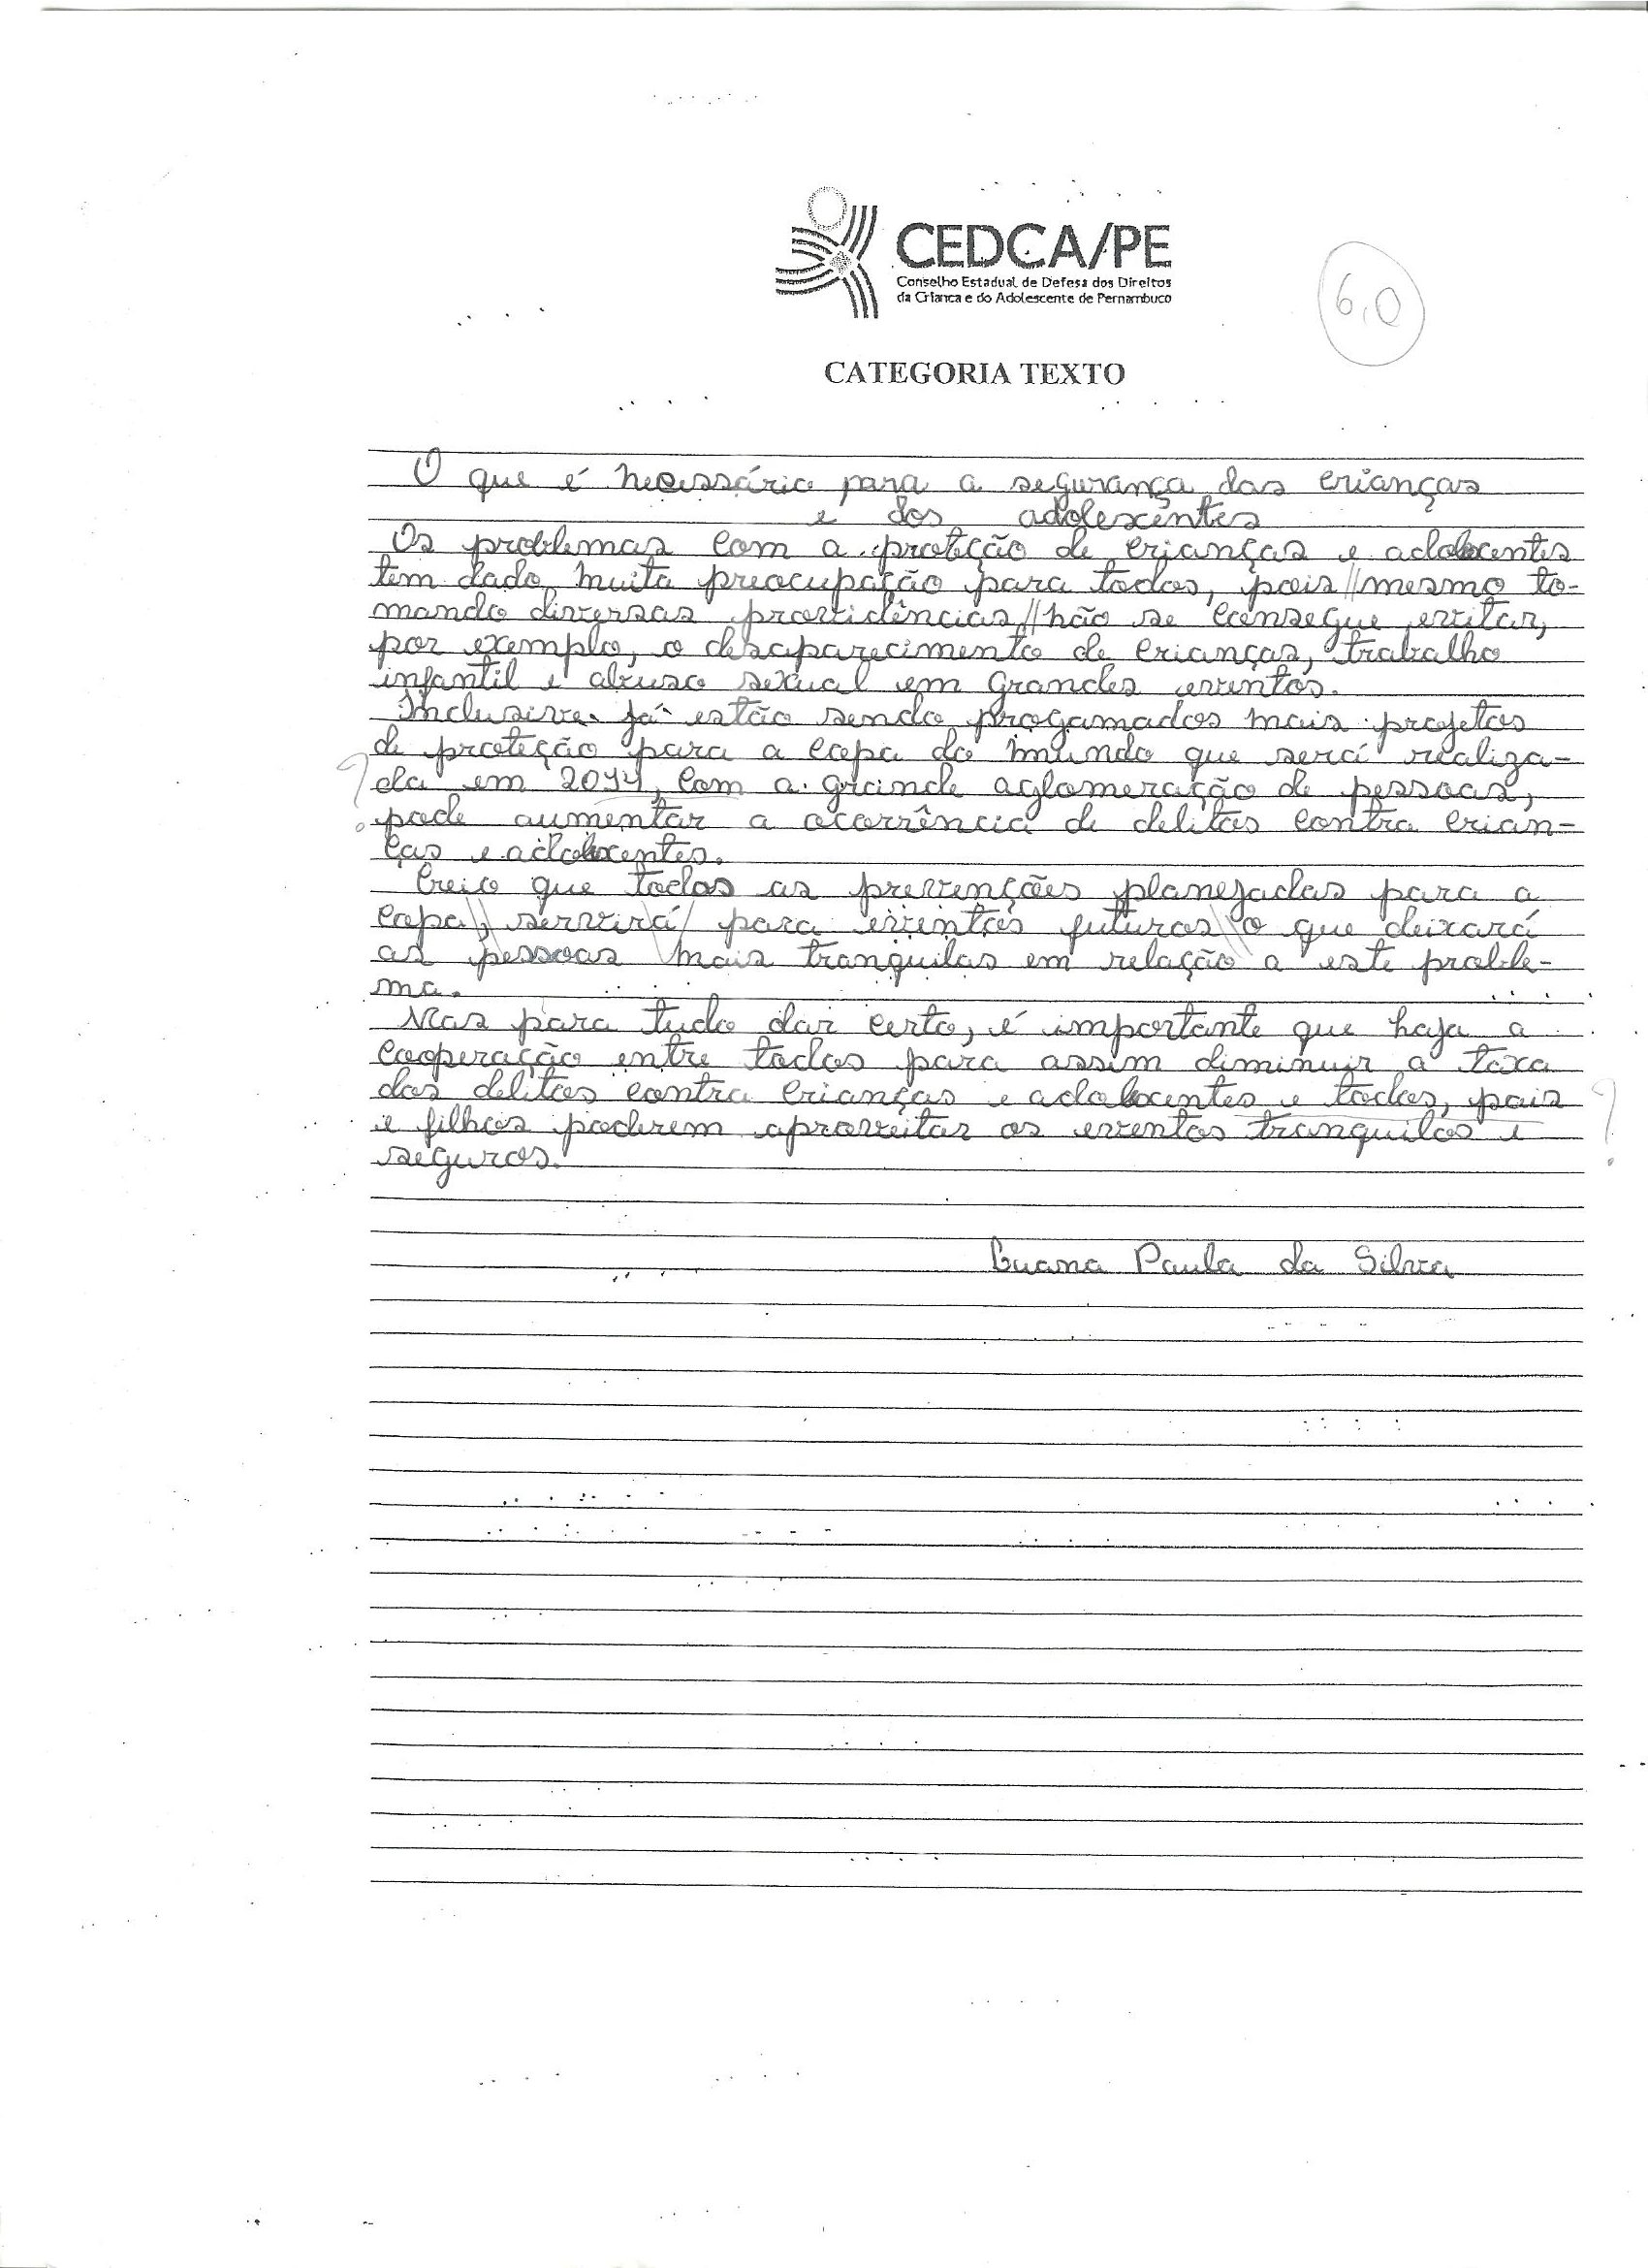 CEDCA/PE
Conselho Estadual de Defesa dos Direitos
da Criança e do Adolescente de Pernambuco
6,0
CATEGORIA TEXTO
O que é necessário para a segurança das crianças
e dos adolescentes
Os problemas com a proteção de crianças e adolescentes
tem dado muita preocupação para todos, pois // mesmo to-
mando diversas providências // não se consegue evitar,
por exemplo, o desaparecimento de crianças, trabalho
infantil e abuso sexual em grandes eventos.
Inclusive já estão sendo progamados mais projetos
de proteção para a copa do mundo que será realiza-
? da em 2014, com a grande aglomeração de pessoas,
pode aumentar a ocorrência de delitos contra crian-
ças e adolecentes.
Creio que todas as prevenções planejadas para a
copa, servirá para eventos futuros // o que deixará
as pessoas mais tranquilas em relação a este proble-
ma.
Mas para tudo dar certo, é importante que haja a
cooperação entre todos para assim diminuir a taxa
dos delitos contra crianças e adolecentes e todos, pais
e filhos poderem aproveitar os eventos tranquilos e ?
seguros.
Luana Paula da Silva